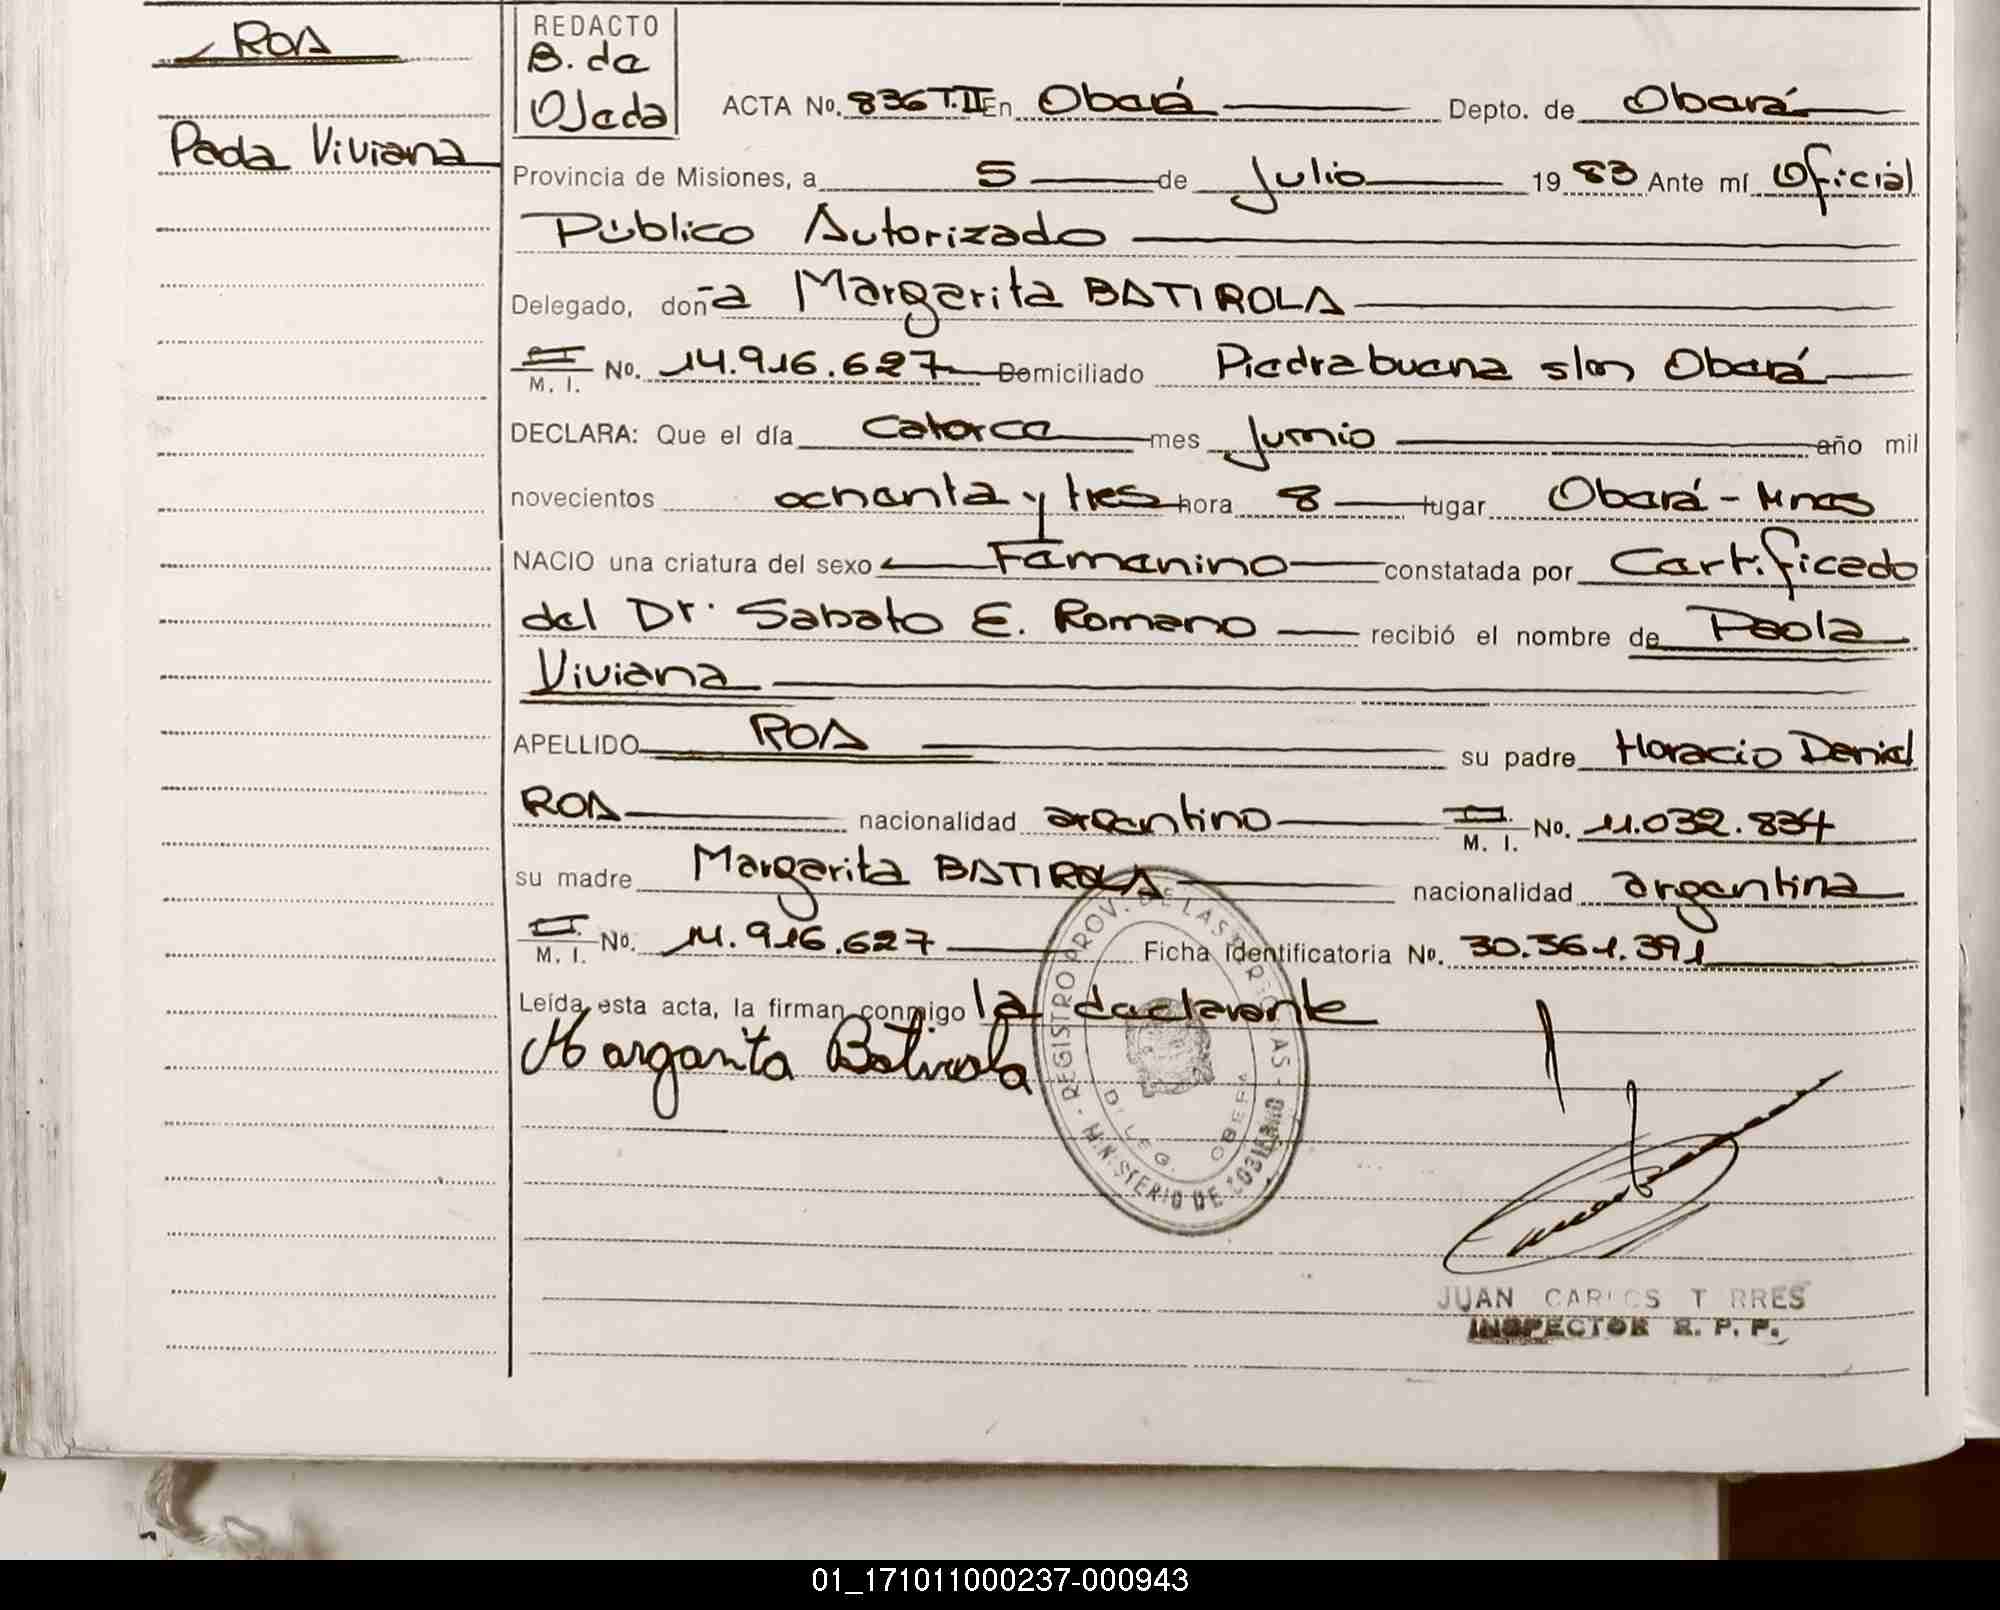 ROA
Paola Viviana
REDACTO
B. de
Ojeda
ACTA No. 836 T.II En Oberá Depto. de Oberá
Provincia de Misiones, a 5 de Julio 19 83 Ante mí Oficial
Público Autorizado
Delegado, doñ a Margarita BATIROLA
M. I. No. 14.916.627 Domiciliado Piedrabuena s/n Oberá
DECLARA: Que el día catorce mes Junio año mil
novecientos ochenta y tres hora 8 lugar Oberá - Mnes
NACIO una criatura del sexo Femenino constatada por Certificado
del Dr. Sabato E. Romano recibió el nombre de Paola
Viviana
APELLIDO ROA su padre Horacio Daniel
ROA nacionalidad argentino M. I. No. 11.032.834
su madre Margarita BATIROLA nacionalidad argentina
M. I. No. 14.916.627 Ficha identificatoria No. 30.361.391
Leída esta acta, la firman conmigo la declarante
Margarita Batirola
REGISTRO PROV. DE LAS PERSONAS - MINISTERIO DE GOBIERNO
DELEG. OBERA
JUAN CARLOS TORRES
INSPECTOR R. P. P.
01_171011000237-000943